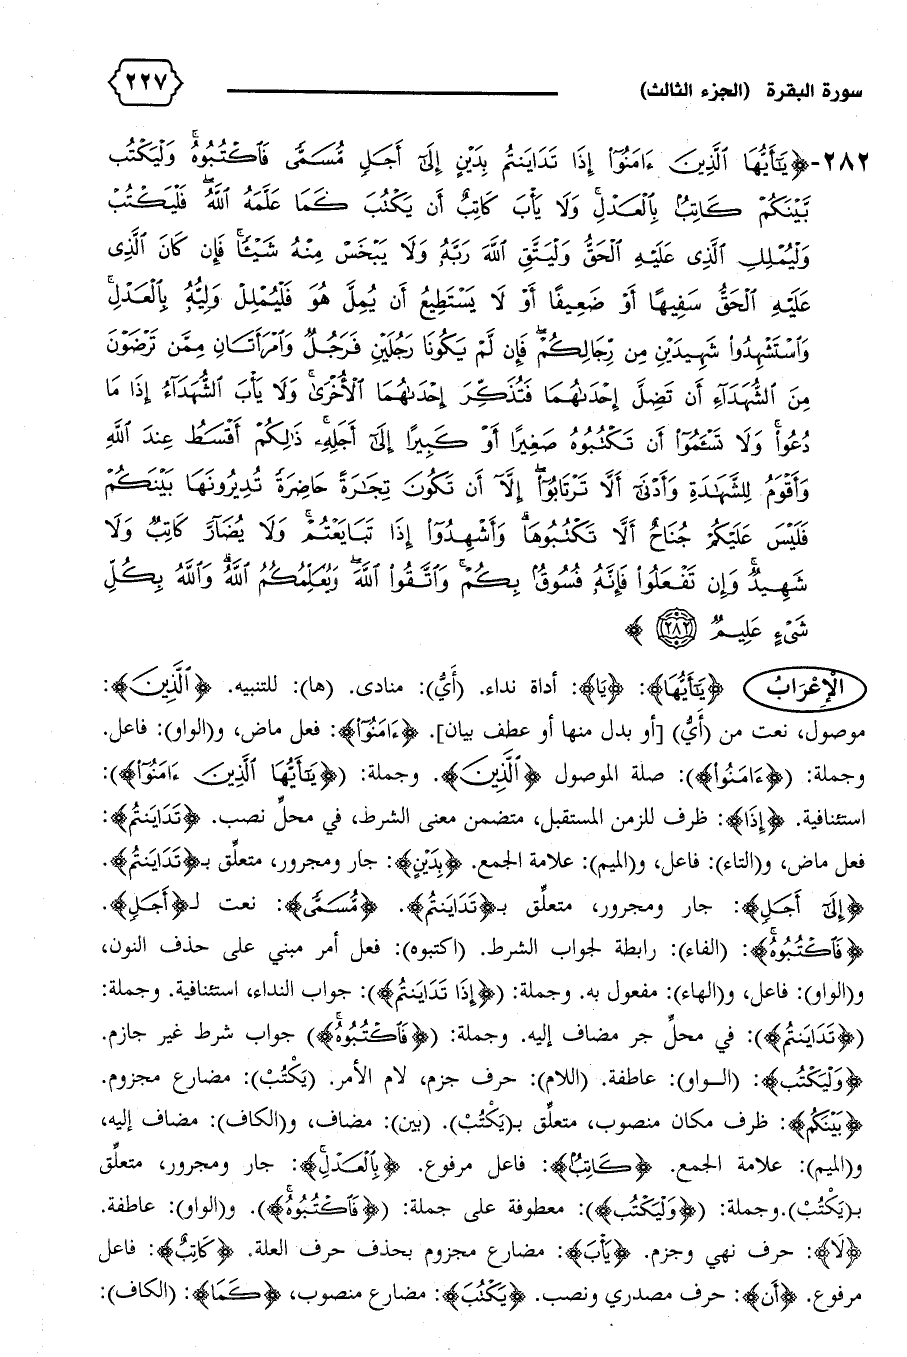 سورة البقرة (الجزء الثالث) ٢٢٧
٢٨٢-﴿يَـٰٓأَيُّهَا ٱلَّذِينَ ءَامَنُوٓا۟ إِذَا تَدَايَنتُم بِدَيْنٍ إِلَىٰٓ أَجَلٍ مُّسَمًّى فَٱكْتُبُوهُ ۚ وَلْيَكْتُب
بَّيْنَكُمْ كَاتِبٌۢ بِٱلْعَدْلِ ۚ وَلَا يَأْبَ كَاتِبٌ أَن يَكْتُبَ كَمَا عَلَّمَهُ ٱللَّهُ ۚ فَلْيَكْتُبْ
وَلْيُمْلِلِ ٱلَّذِى عَلَيْهِ ٱلْحَقُّ وَلْيَتَّقِ ٱللَّهَ رَبَّهُۥ وَلَا يَبْخَسْ مِنْهُ شَيْـًٔا ۚ فَإِن كَانَ ٱلَّذِى
عَلَيْهِ ٱلْحَقُّ سَفِيهًا أَوْ ضَعِيفًا أَوْ لَا يَسْتَطِيعُ أَن يُمِلَّ هُوَ فَلْيُمْلِلْ وَلِيُّهُۥ بِٱلْعَدْلِ ۚ
وَٱسْتَشْهِدُوا۟ شَهِيدَيْنِ مِن رِّجَالِكُمْ ۖ فَإِن لَّمْ يَكُونَا رَجُلَيْنِ فَرَجُلٌ وَٱمْرَأَتَانِ مِمَّن تَرْضَوْنَ
مِنَ ٱلشُّهَدَآءِ أَن تَضِلَّ إِحْدَىٰهُمَا فَتُذَكِّرَ إِحْدَىٰهُمَا ٱلْأُخْرَىٰ ۚ وَلَا يَأْبَ ٱلشُّهَدَآءُ إِذَا مَا
دُعُوا۟ ۚ وَلَا تَسْـَٔمُوٓا۟ أَن تَكْتُبُوهُ صَغِيرًا أَوْ كَبِيرًا إِلَىٰٓ أَجَلِهِۦ ۚ ذَٰلِكُمْ أَقْسَطُ عِندَ ٱللَّهِ
وَأَقْوَمُ لِلشَّهَـٰدَةِ وَأَدْنَىٰٓ أَلَّا تَرْتَابُوٓا۟ ۖ إِلَّآ أَن تَكُونَ تِجَـٰرَةً حَاضِرَةً تُدِيرُونَهَا بَيْنَكُمْ
فَلَيْسَ عَلَيْكُمْ جُنَاحٌ أَلَّا تَكْتُبُوهَا ۗ وَأَشْهِدُوٓا۟ إِذَا تَبَايَعْتُمْ ۚ وَلَا يُضَآرَّ كَاتِبٌ وَلَا
شَهِيدٌ ۚ وَإِن تَفْعَلُوا۟ فَإِنَّهُۥ فُسُوقٌۢ بِكُمْ ۗ وَٱتَّقُوا۟ ٱللَّهَ ۖ وَيُعَلِّمُكُمُ ٱللَّهُ ۗ وَٱللَّهُ بِكُلِّ
شَىْءٍ عَلِيمٌ ٢٨٢ ﴾
الإِعْرَابُ ﴿يَـٰٓأَيُّهَا﴾: ﴿يَا﴾: أداة نداء. (أَيُّ): منادى. (ها): للتنبيه. ﴿ٱلَّذِينَ﴾:
موصول، نعت من (أَيُّ) [أو بدل منها أو عطف بيان]. ﴿ءَامَنُوٓا۟﴾: فعل ماض، و(الواو): فاعل.
وجملة: (﴿ءَامَنُوا۟﴾): صلة الموصول ﴿ٱلَّذِينَ﴾. وجملة: (﴿يَـٰٓأَيُّهَا ٱلَّذِينَ ءَامَنُوٓا۟﴾):
استئنافية. ﴿إِذَا﴾: ظرف للزمن المستقبل، متضمن معنى الشرط، في محلِّ نصب. ﴿تَدَايَنتُم﴾:
فعل ماض، و(التاء): فاعل، و(الميم): علامة الجمع. ﴿بِدَيْنٍ﴾: جار ومجرور، متعلِّق بـ﴿تَدَايَنتُم﴾.
﴿إِلَىٰٓ أَجَلٍ﴾: جار ومجرور، متعلِّق بـ﴿تَدَايَنتُم﴾. ﴿مُّسَمًّى﴾: نعت لـ﴿أَجَلٍ﴾.
﴿فَٱكْتُبُوهُ ۚ﴾: (الفاء): رابطة لجواب الشرط. (اكتبوه): فعل أمر مبني على حذف النون،
و(الواو): فاعل، و(الهاء): مفعول به. وجملة: (﴿إِذَا تَدَايَنتُم﴾): جواب النداء، استئنافية. وجملة:
(﴿تَدَايَنتُم﴾): في محلِّ جر مضاف إليه. وجملة: (﴿فَٱكْتُبُوهُ ۚ﴾) جواب شرط غير جازم.
﴿وَلْيَكْتُب﴾: (الـواو): عاطفة. (اللام): حرف جزم، لام الأمر. (يَكْتُبْ): مضارع مجزوم.
﴿بَّيْنَكُمْ﴾: ظرف مكان منصوب، متعلِّق بـ(يَكْتُبْ). (بين): مضاف، و(الكاف): مضاف إليه،
و(الميم): علامة الجمع. ﴿كَاتِبٌۢ﴾: فاعل مرفوع. ﴿بِٱلْعَدْلِ ۚ﴾: جار ومجرور، متعلِّق
بـ(يَكْتُبْ).وجملة: (﴿وَلْيَكْتُب﴾): معطوفة على جملة: (﴿فَٱكْتُبُوهُ ۚ﴾). و(الواو): عاطفة.
﴿لَا﴾: حرف نهي وجزم. ﴿يَأْبَ﴾: مضارع مجزوم بحذف حرف العلة. ﴿كَاتِبٌ﴾: فاعل
مرفوع. ﴿أَن﴾: حرف مصدري ونصب. ﴿يَكْتُبَ﴾: مضارع منصوب، ﴿كَمَا﴾: (الكاف):